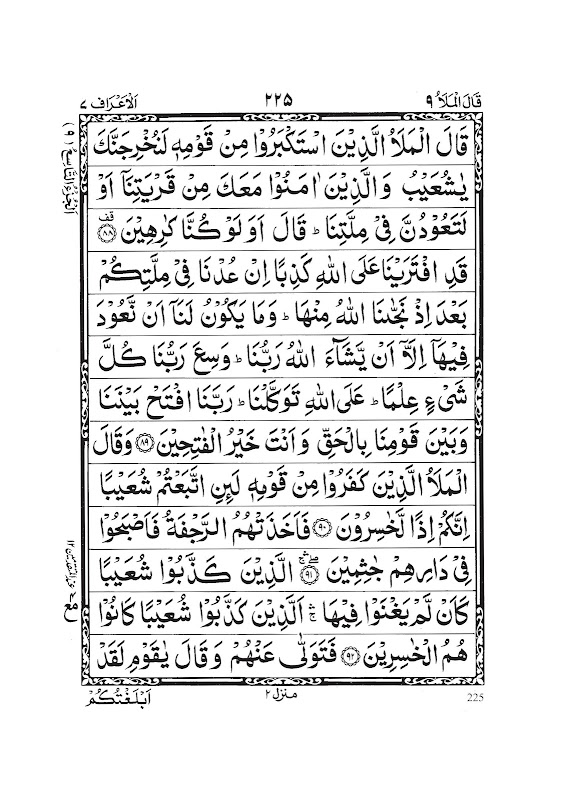 قَالَ الْمَلَاُ ٩
٢٢٥
اَلْاَعْرَاف ٧
اَلْجُزْءُ التَّاسِعُ (٩)
قَالَ الْمَلَاُ الَّذِيْنَ اسْتَكْبَرُوْا مِنْ قَوْمِهٖ لَنُخْرِجَنَّكَ
يٰشُعَيْبُ وَالَّذِيْنَ اٰمَنُوْا مَعَكَ مِنْ قَرْيَتِنَاۤ اَوْ
لَتَعُوْدُنَّ فِيْ مِلَّتِنَا ؕ قَالَ اَوَلَوْ كُنَّا كٰرِهِيْنَ ۟قف ﴿٨٨﴾
قَدِ افْتَرَيْنَا عَلَى اللّٰهِ كَذِبًا اِنْ عُدْنَا فِيْ مِلَّتِكُمْ
بَعْدَ اِذْ نَجّٰىنَا اللّٰهُ مِنْهَا ؕ وَمَا يَكُوْنُ لَنَاۤ اَنْ نَّعُوْدَ
فِيْهَاۤ اِلَّاۤ اَنْ يَّشَآءَ اللّٰهُ رَبُّنَا ؕ وَسِعَ رَبُّنَا كُلَّ
شَيْءٍ عِلْمًا ؕ عَلَى اللّٰهِ تَوَكَّلْنَا ؕ رَبَّنَا افْتَحْ بَيْنَنَا
وَبَيْنَ قَوْمِنَا بِالْحَقِّ وَاَنْتَ خَيْرُ الْفٰتِحِيْنَ ﴿٨٩﴾ وَقَالَ
الْمَلَاُ الَّذِيْنَ كَفَرُوْا مِنْ قَوْمِهٖ لَئِنِ اتَّبَعْتُمْ شُعَيْبًا
اِنَّكُمْ اِذًا لَّخٰسِرُوْنَ ﴿٩٠﴾ فَاَخَذَتْهُمُ الرَّجْفَةُ فَاَصْبَحُوْا
فِيْ دَارِهِمْ جٰثِمِيْنَ ﴿٩١﴾ الَّذِيْنَ كَذَّبُوْا شُعَيْبًا
كَاَنْ لَّمْ يَغْنَوْا فِيْهَا ۛ اَلَّذِيْنَ كَذَّبُوْا شُعَيْبًا كَانُوْا
هُمُ الْخٰسِرِيْنَ ﴿٩٢﴾ فَتَوَلّٰى عَنْهُمْ وَقَالَ يٰقَوْمِ لَقَدْ
اَبْلَغْتُكُمْ
منزل ٢
225